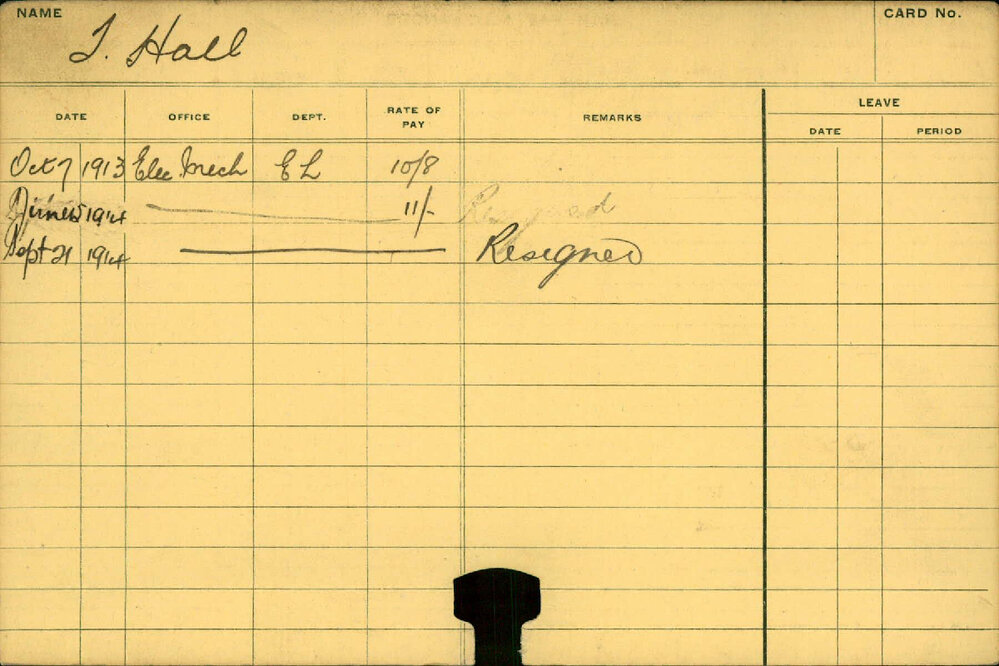 NAME
CARD No.
Hall
DATE OFFICE DEPT. RATE OF PAY REMARKS LEAVE
DATE PERIOD
Oct 7 1913 Elec Mech E L 10/8
June 1914 11/-
Sept 21 1914 Resigned